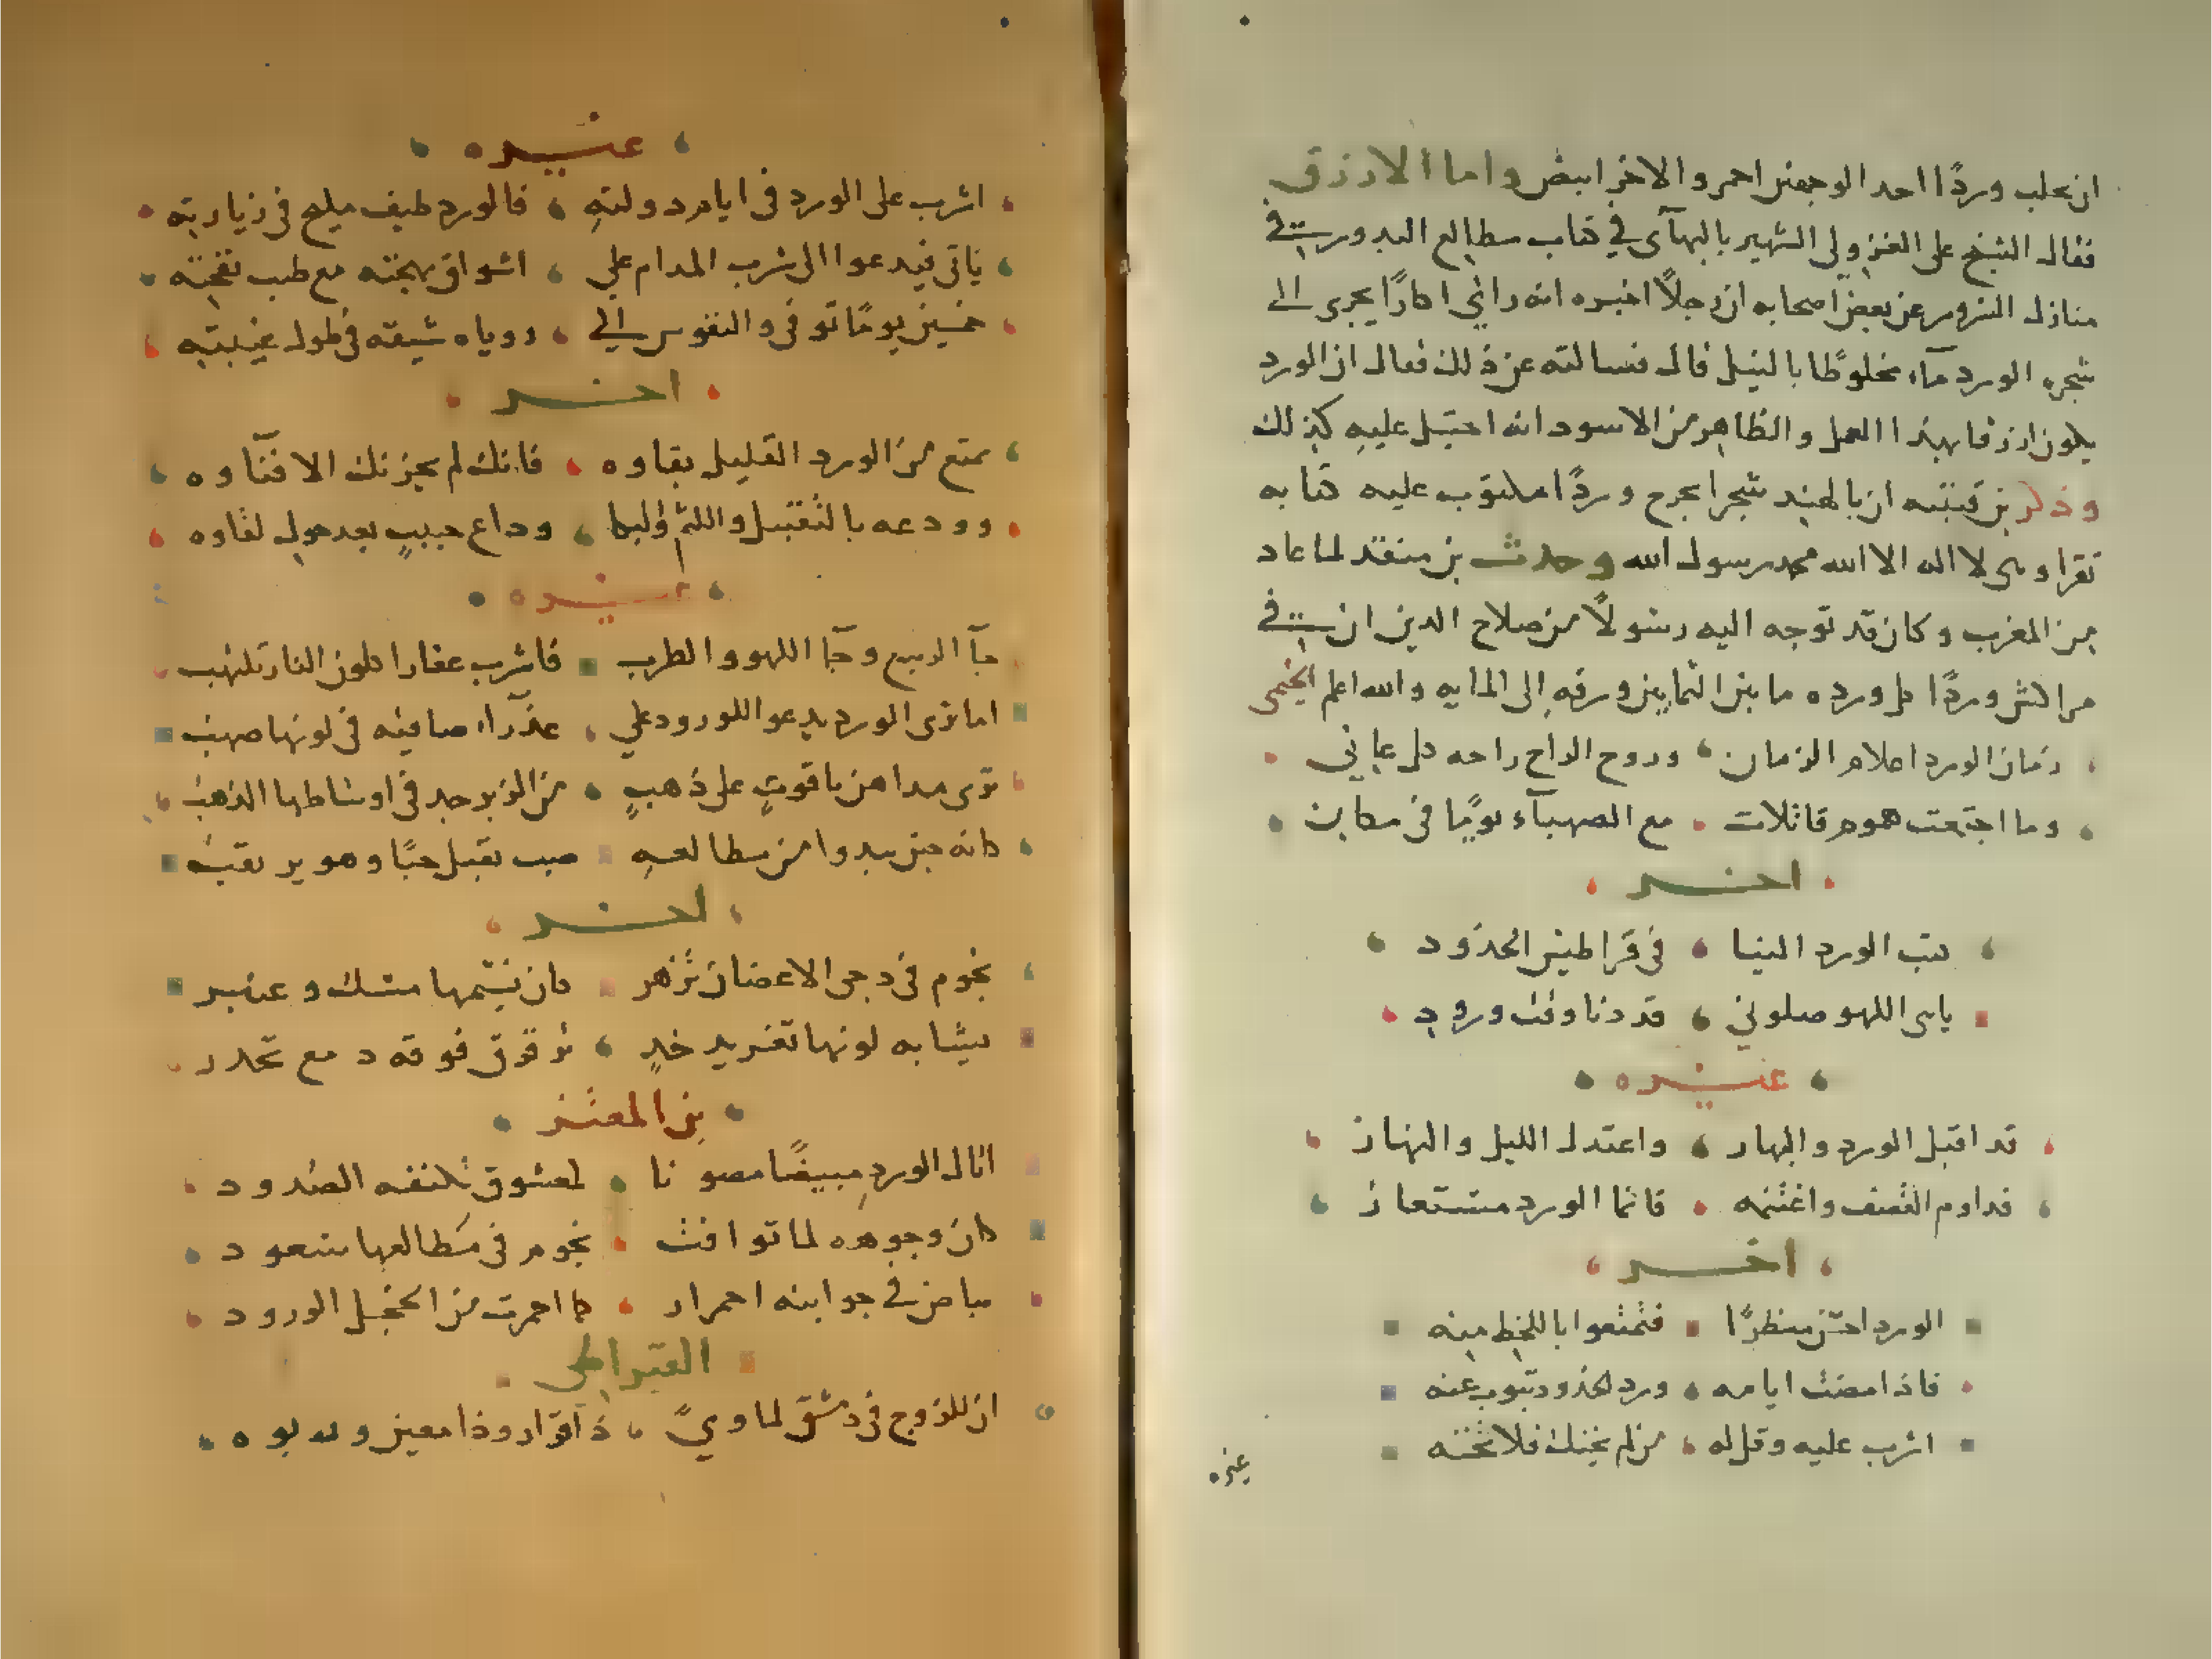 ان بحلب وردًا احد الوجهين احمر والاخر ابيض واما الازرق
فقال الشيخ على الغزولى الشهير بالبهآى في كتاب مطالع البدور في
منازل السرور عن بعض اصحابه ان رجلاً اخبره انه راي اكارًا يجرى الى
شجره الورد مآء مخلوطًا بالنيل قال فسالته عن ذلك فقال ان الورد
يكون ازرقا بهذا العمل والظاهر من الاسود انه احتيل عليه كذلك
وذكر بن قتيبه ان بالهند شجرا يخرج وردًا مكتوب عليه كتابه
تقرا وهى لا اله الا الله محمد رسول الله وحدث بن منقذ لما عاد
من المغرب وكان قد توجه اليه رسولاً من صلاح الدين ان في
مراكش وردًا كل ورده ما بين الثمانين ورقه الى المايه والله اعلم
زمان الورد احلام الزمان وروح الراح راحه كل عاني
وما اجتمعت هموم قاتلات مع الصهبآء يومًا فى مكان
اخر
كتب الورد الينا فى قراطيس الخدود
يابنى اللهو صلونى قد دنا وقت ورود
غيره
قد اقبل الورد والبهار واعتدل الليل والنهار
فداوم القصف واغتنمه فانما الورد مستعار
اخر
الورد احسن منظرًا فتمتعوا باللحظ منه
فاذا مضت ايامه ورد الخدود ينوب عنه
اشرب عليه وقل له من لم يخنك فلا تخنه
غيره
غيره
اشرب على الورد فى ايام دولته فالورد طيف مليح فى زيارته
ياتى فيدعوا الى شرب المدام على اشواق بهجته مع طيب نفحته
خمسين يومًا توفى والنفوس الي روياه شيقه فى طول غيبته
اخر
تمتع من الورد القليل بقاوه فانك لم يحزنك الا فنآوه
وودعه بالتقبيل واللثم والبكا وداع حبيب بعد حول لقاوه
غيره
جآ الربيع وجآ اللهو والطرب فاشرب عقارا كلون النار تلتهب
اما ترى الورد يدعو اللورود على عذرآء صافيه فى لونها صهب
ترى مداهن ياقوتٍ على ذهبٍ من الزبرجد فى اوساطها الذهب
كانه حين يبدوا من مطالعه صب يقبل حبًا وهو يرتقب
اخر
نجوم فى دجى الاغصان تزهر كان نسيمها مسك وعنبر
يشابه لونها تغريد خدٍ ترقرق فوقه دمع تحدر
بن المعتز
اتاك الورد مبيضًا مصونا لمعشوق تكنفه الصدود
كان وجوهه لما توافت نجوم فى مطالعها سعود
بياض في جوانبه احمرار كما احمرت من الخجل الورود
القيراطي
ان للزوج فى دمشق لماوىً ذا قرار وذا معين وربوه